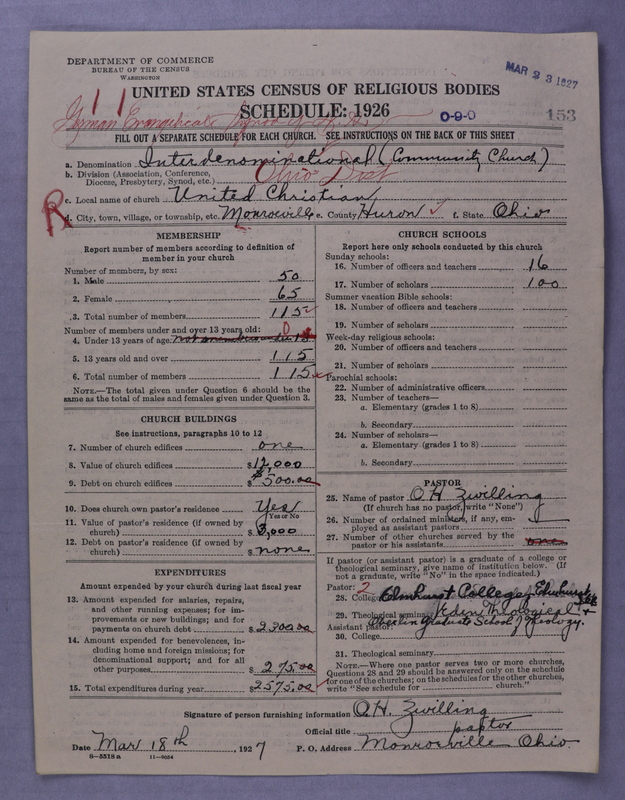 DEPARTMENT OF COMMERCE
BUREAU OF THE CENSUS
WASHINGTON
MAR 23 1927
UNITED STATES CENSUS OF RELIGIOUS BODIES
SCHEDULE: 1926
German Evangelical Synod of N. A.
0-9-0
153
FILL OUT A SEPARATE SCHEDULE FOR EACH CHURCH. SEE INSTRUCTIONS ON THE BACK OF THIS SHEET
a. Denomination Interdenominational (Community Church)
b. Division (Association, Conference, Diocese, Presbytery, Synod, etc.) Ohio Dist
c. Local name of church United Christian
R
d. City, town, village, or township, etc. Monroeville e. County Huron f. State Ohio
MEMBERSHIP
Report number of members according to definition of
member in your church
Number of members, by sex:
1. Male 50
2. Female 65
3. Total number of members 115
Number of members under and over 13 years old:
4. Under 13 years of age not members under 13 0
5. 13 years old and over 115
6. Total number of members 115
NOTE.—The total given under Question 6 should be
same as the total of males and females given under Question 3.
CHURCH BUILDINGS
See instructions, paragraphs 10 to 12
7. Number of church edifices one
8. Value of church edifices $12,000
9. Debt on church edifices $500.00
10. Does church own pastor's residence Yes
Yes or No
11. Value of pastor's residence (if owned by
church) $3,000
12. Debt on pastor's residence (if owned by
church) $none
EXPENDITURES
Amount expended by your church during last fiscal year
13. Amount expended for salaries, repairs,
and other running expenses; for im-
provements or new buildings; and for
payments on church debt $2300.00
14. Amount expended for benevolences, in-
cluding home and foreign missions; for
denominational support; and for all
other purposes $275.00
15. Total expenditures during year $2575.00
CHURCH SCHOOLS
Report here only schools conducted by this church
Sunday schools:
16. Number of officers and teachers 16
17. Number of scholars 100
Summer vacation Bible schools:
18. Number of officers and teachers
19. Number of scholars
Week-day religious schools:
20. Number of officers and teachers
21. Number of scholars
Parochial schools:
22. Number of administrative officers
23. Number of teachers—
a. Elementary (grades 1 to 8)
b. Secondary
24. Number of scholars—
a. Elementary (grades 1 to 8)
b. Secondary
PASTOR
25. Name of pastor O. H. Zwilling
(If church has no pastor, write "None")
26. Number of ordained ministers, if any, em-
ployed as assistant pastors
27. Number of other churches served by the
pastor or his assistants
If pastor (or assistant pastor) is a graduate of a college or
theological seminary, give name of institution below. (If
not a graduate, write "No" in the space indicated.)
Pastor: 2
28. College Elmhurst College, Elmhurst
29. Theological seminary Eden Theological +
Oberlin Graduate School of Theology.
Assistant pastor:
30. College
31. Theological seminary
NOTE.—Where one pastor serves two or more churches,
Questions 28 and 29 should be answered only on the schedule
for one of the churches; on the schedules for the other churches,
write "See schedule for church."
Signature of person furnishing information O. H. Zwilling
Official title pastor
Date Mar 18th, 1927 P. O. Address Monroeville Ohio
8—5518a 11—9054